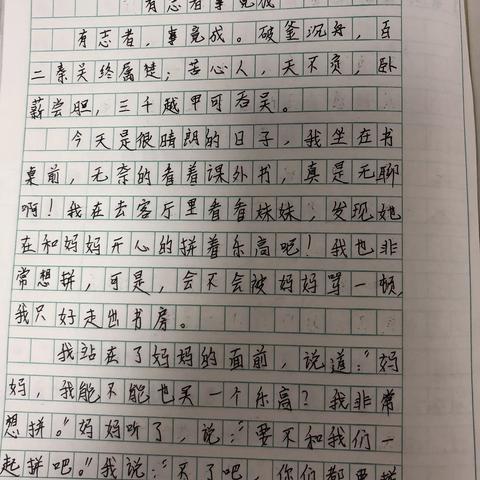 有志者事竟成
有志者，事竟成。破釜沉舟，百
二秦关终属楚；苦心人，天不负，卧
薪尝胆，三千越甲可吞吴。
今天是很晴朗的日子，我坐在书
桌前，无奈的看着课外书，真是无聊
啊！我在去客厅里看看妹妹，发现她
在和妈妈开心的拼着乐高吧！我也非
常想拼，可是，会不会被妈妈骂一顿，
我只好走出书房。
我站在了妈妈的面前，说道：“妈
妈，我能不能也买一个乐高？我非常
想拼。”妈妈听了，说：“要不和我们一
起拼吧。”我说：“不了吧，你们都要拼